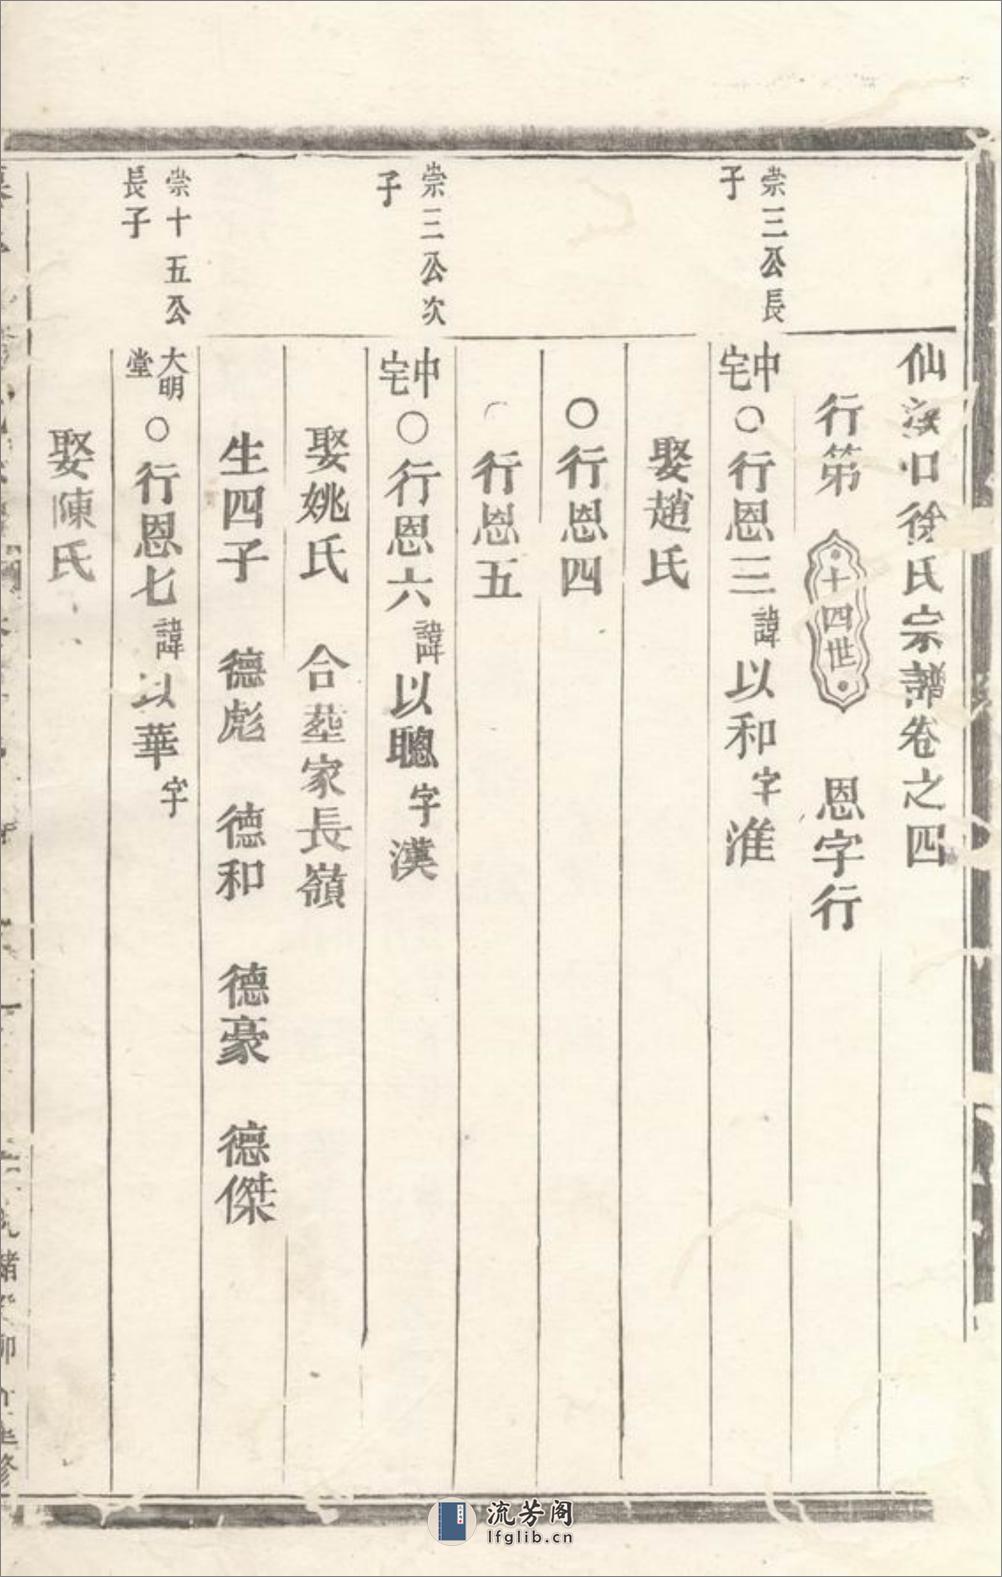 仙溪口徐氏宗譜卷之四
行第 十四世 恩字行
崇三公長子
中宅○行恩三諱以和字淮
娶趙氏
○行恩四
行恩五
崇三公次子
中宅○行恩六諱以聰字漢
娶姚氏 合塟家長嶺
生四子 德彪 德和 德豪 德傑
崇十五公長子
大明堂○行恩七諱以華字
娶陳氏
緒 卯 修
流芳阁
lfglib.cn